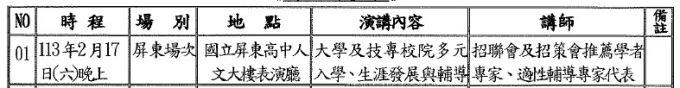 NO 時程 場別 地點 演講內容 講師 備註
01 113年2月17日(六)晚上 屏東場次 國立屏東高中人文大樓表演廳 大學及技專校院多元入學、生涯發展與輔導 招聯會及招策會推薦學者專家、適性輔導專家代表